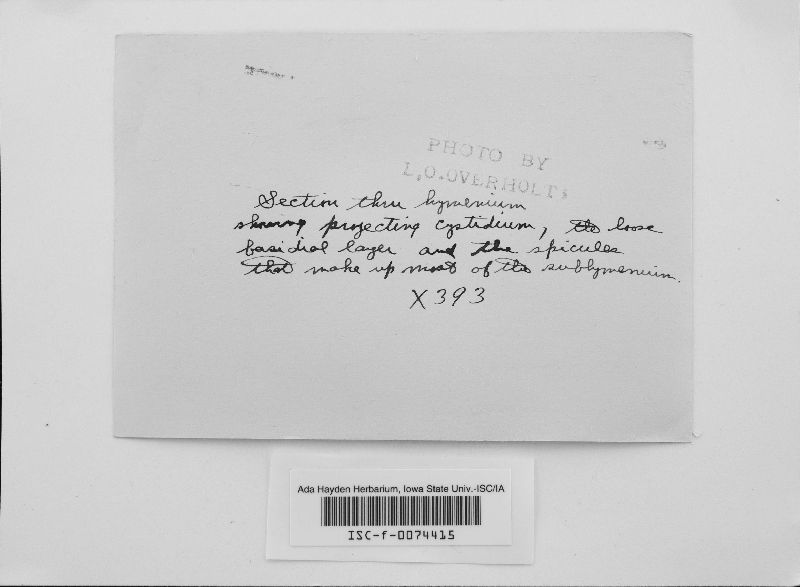 PHOTO BY
L.O. OVERHOLTS
Section thru hymenium
showing projecting cystidium, the loose
basidial layer and the spicules
that make up most of the subhymenium.
X393
Ada Hayden Herbarium, Iowa State Univ.-ISC/IA
ISC-f-0074415